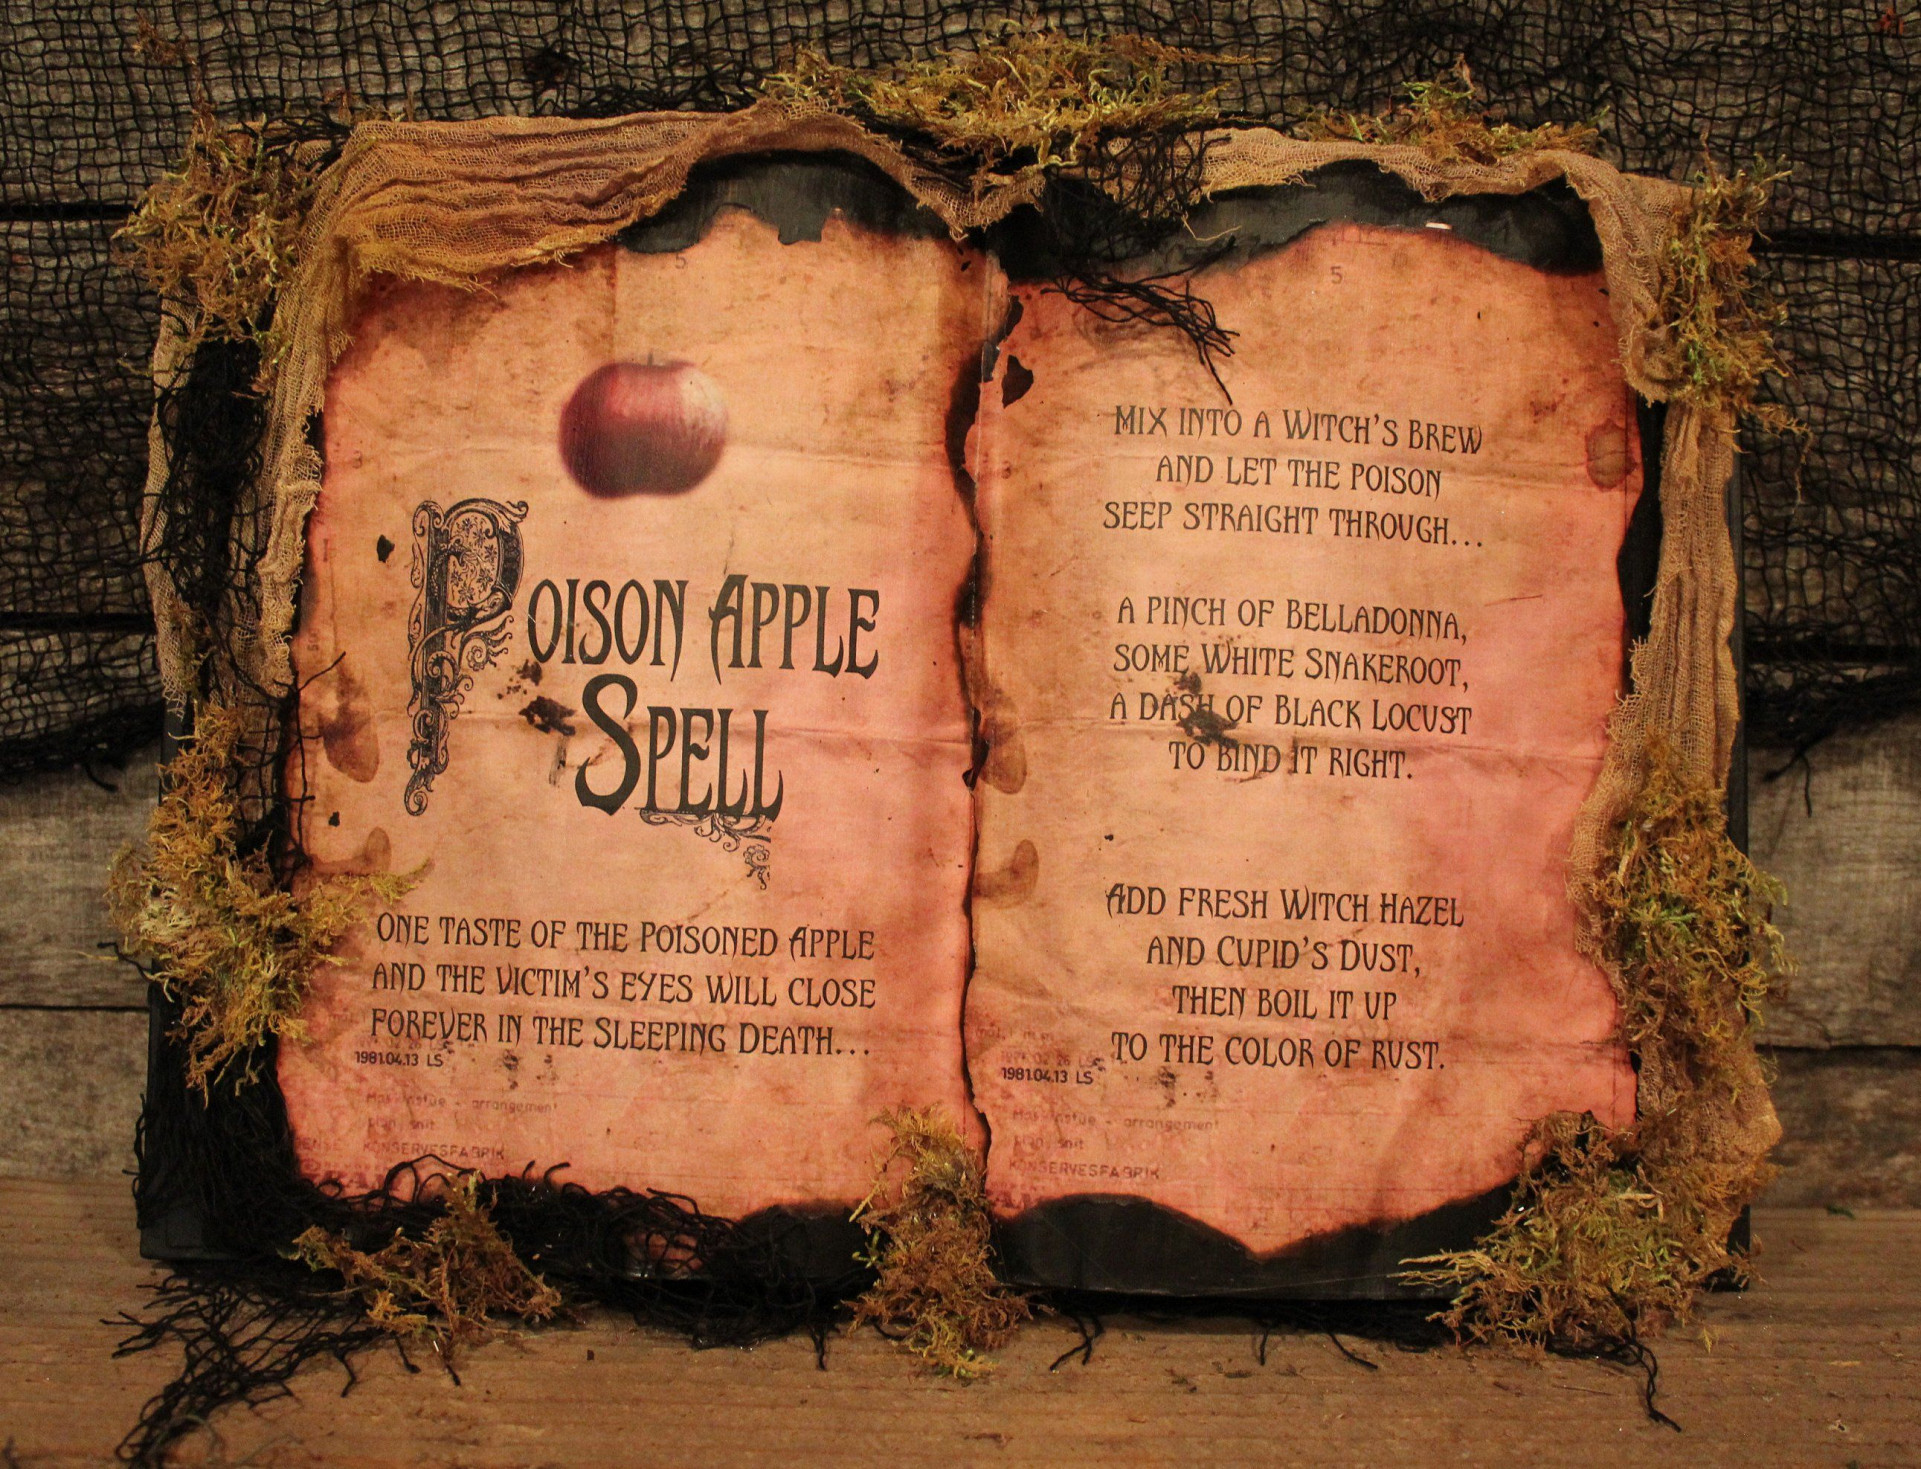 5
Poison Apple
Spell
One taste of the Poisoned Apple
and the victim's eyes will close
forever in the Sleeping Death...
1981.04.13 LS
arrangement
KONSERVESFABRIK
5
Mix into a Witch's Brew
and let the poison
seep straight through...
A pinch of Belladonna,
some White Snakeroot,
a dash of Black Locust
to bind it right.
Add fresh Witch Hazel
and Cupid's Dust,
then boil it up
to the color of rust.
1981.04.13 LS
arrangement
KONSERVESFABRIK